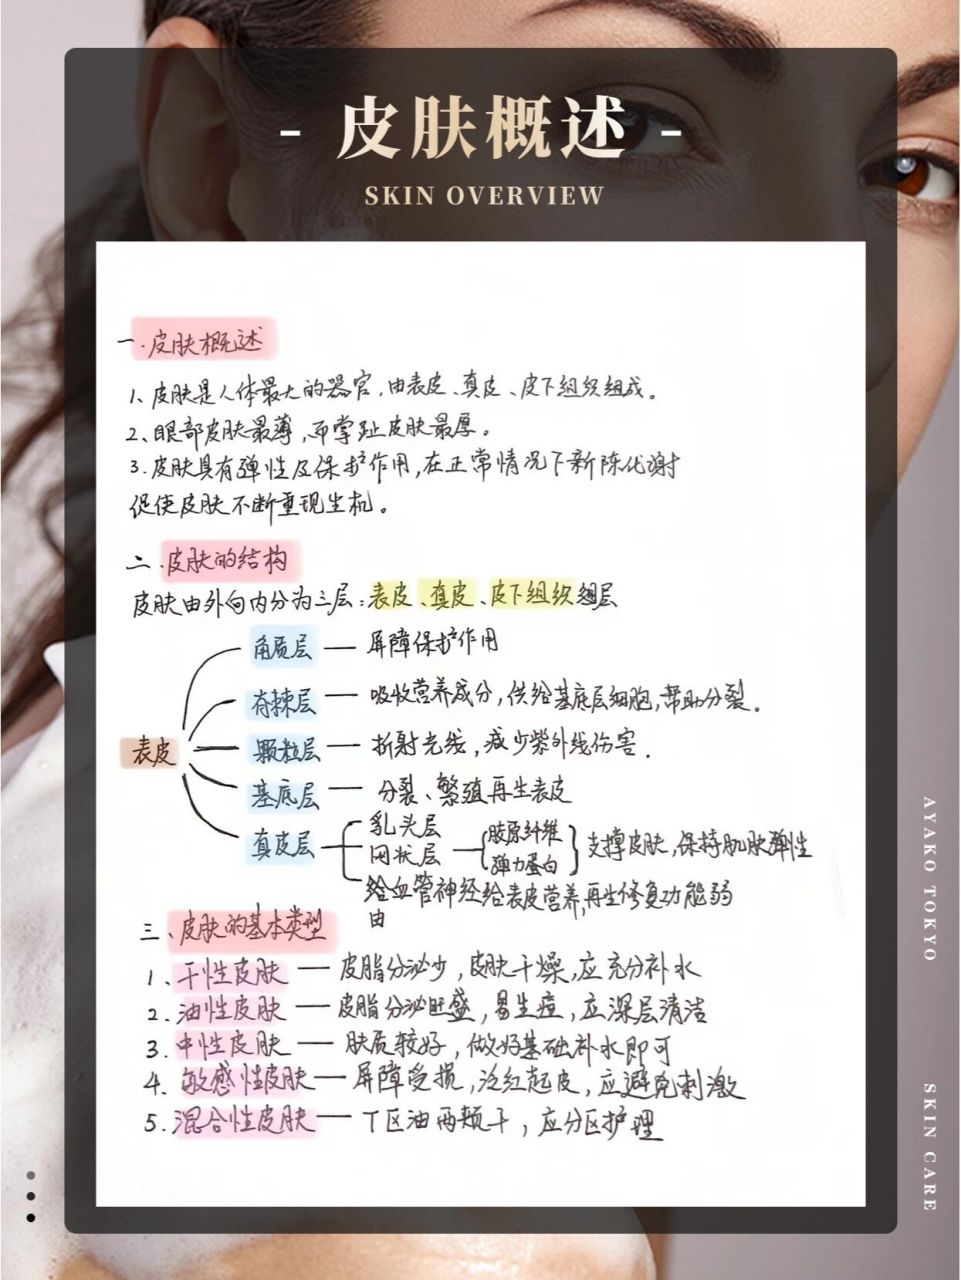 - 皮肤概述 -
SKIN OVERVIEW
一.皮肤概述
1、皮肤是人体最大的器官,由表皮、真皮、皮下组织组成。
2、眼部皮肤最薄,而掌趾皮肤最厚。
3.皮肤具有弹性及保护作用,在正常情况下新陈代谢
促使皮肤不断重现生机。
二.皮肤的结构
皮肤由外向内分为三层:表皮、真皮、皮下组织 层
角质层 — 屏障保护作用
棘层 — 吸收营养成分,供给基底层细胞,帮助分裂。
颗粒层 — 折射光线,减少紫外线伤害.
表皮
基底层 — 分裂、繁殖再生表皮
真皮层
乳头层
网状层 — 胶原纤维 弹力蛋白 支撑皮肤,保持肌肤弹性
给血管神经给表皮营养,再生修复功能弱
由
三、皮肤的基本类型
1、干性皮肤 — 皮脂分泌少,皮肤干燥,应充分补水
2.油性皮肤 — 皮脂分泌旺盛,易生痘,应深层清洁
3.中性皮肤 — 肤质较好,做好基础补水即可
4.敏感性皮肤 — 屏障受损,泛红起皮,应避免刺激
5.混合性皮肤 — T区油两颊干,应分区护理
AYAKO TOKYO
SKIN CARE